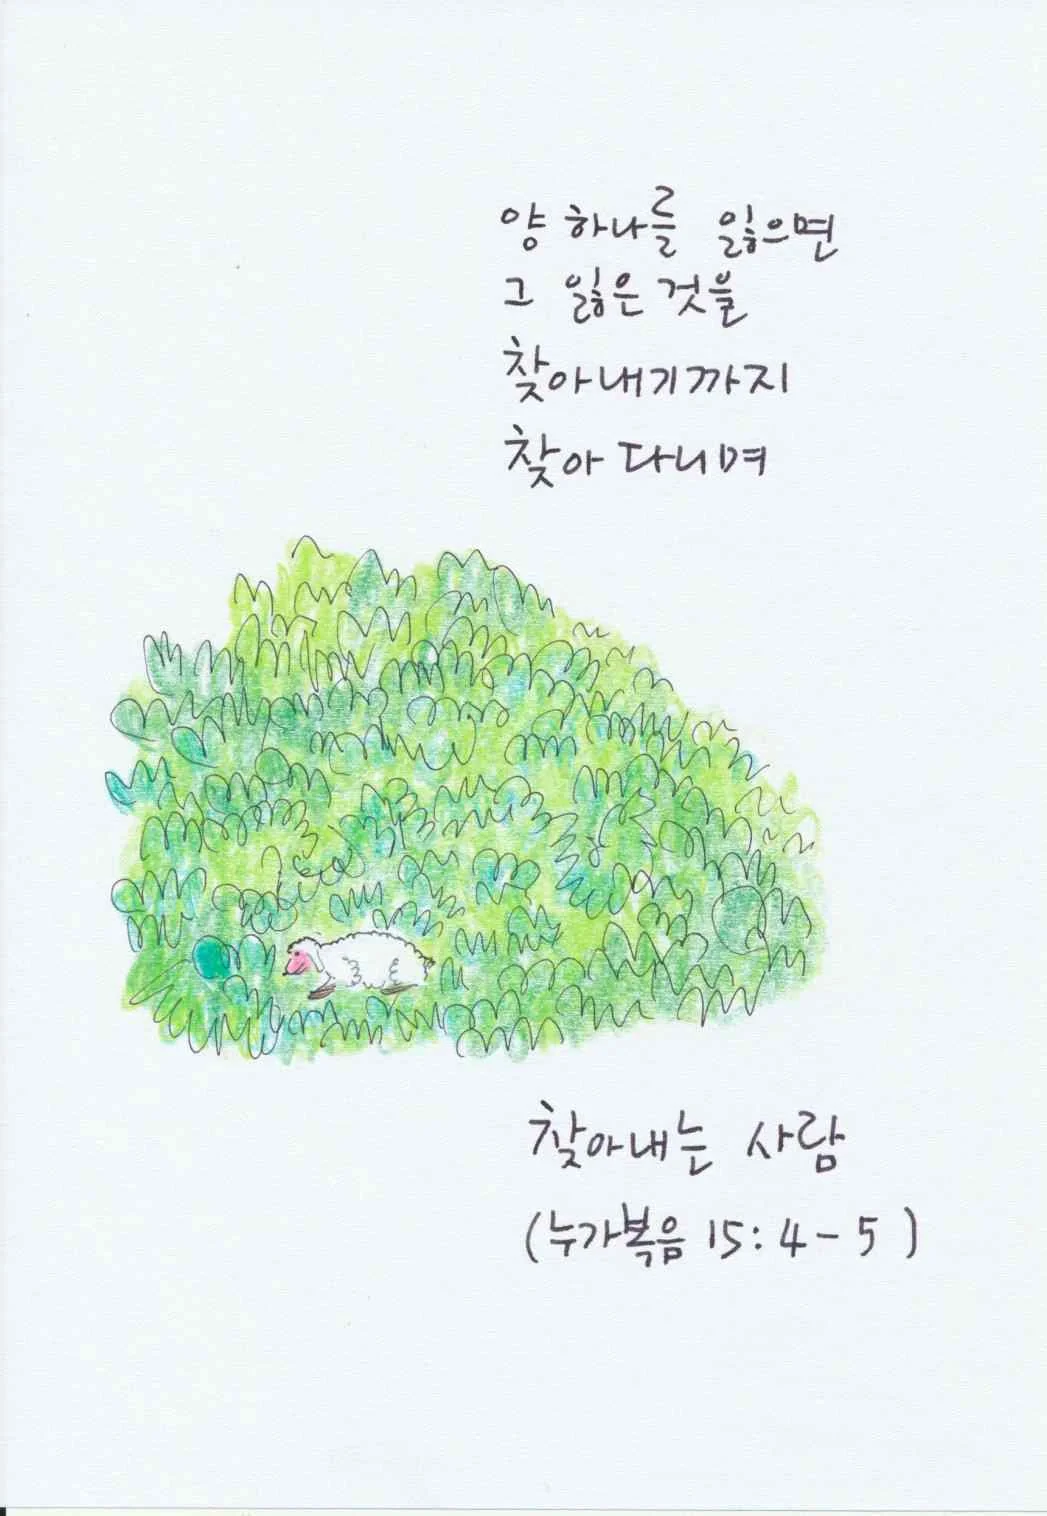 양 하나를 잃으면
그 잃은 것을
찾아내기까지
찾아 다니며
찾아내는 사람
(누가복음 15: 4-5)